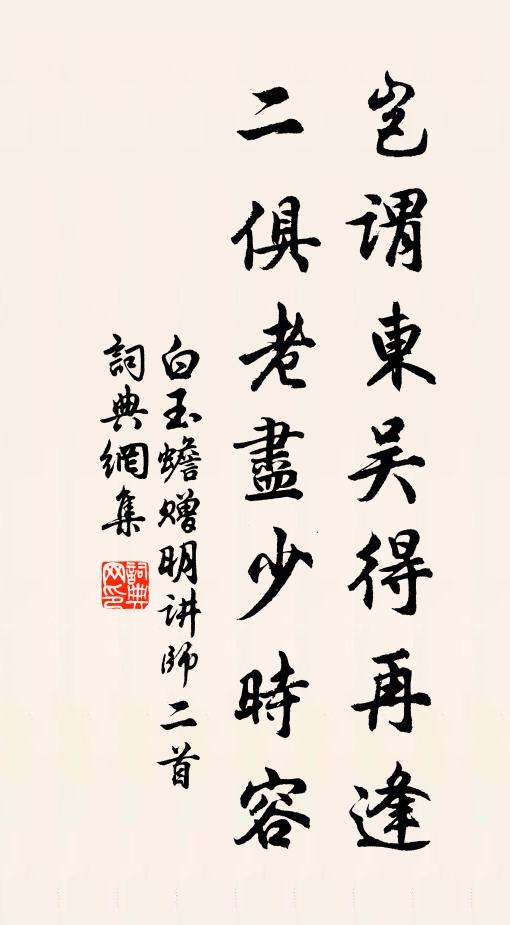 豈謂東吴得再逢
二俱老盡少時容
白玉蟾赠明讲師二首
詞典網集
詞典网印